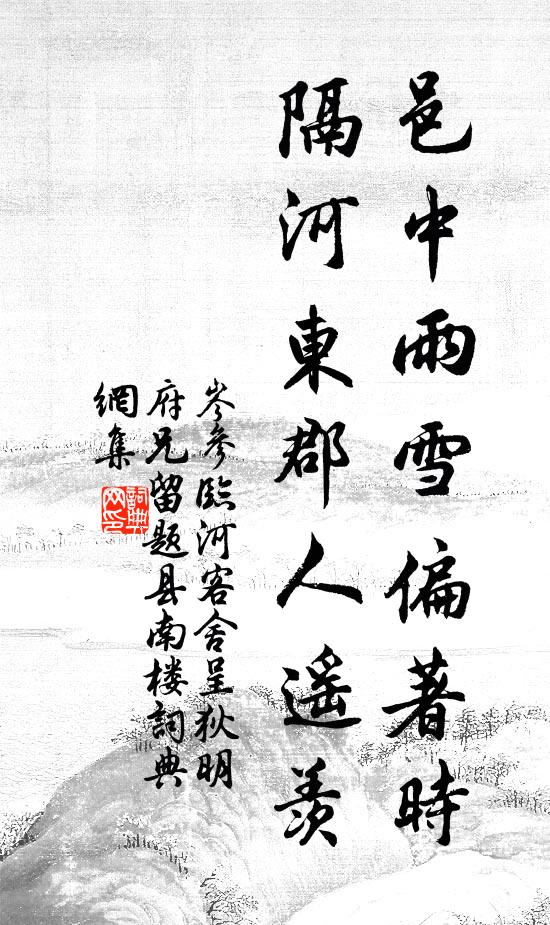 邑中雨雪偏著時
隔河東郡人遥羨
岑參臨河客舍呈狄明
府兄留題县南楼詞典
網集
詞典
网印